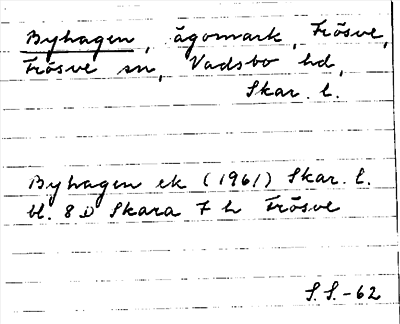 Byhagen, ägomark, Frösve,
Frösve sn, Vadsbo hd,
Skar. l.
Byhagen ek (1961) Skar. l.
bl. 8 D Skara 7 h Frösve
S.S.-62